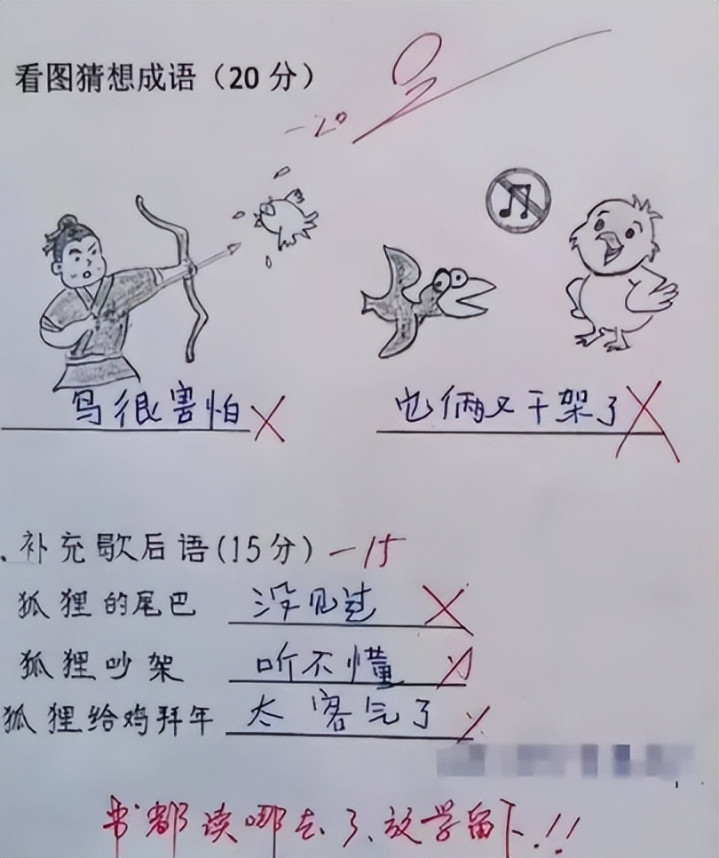 看图猜想成语（20 分）
-20
鸟很害怕
它俩又干架了
、补充歇后语(15分) -15
狐狸的尾巴 没见过
狐狸吵架 听不懂
狐狸给鸡拜年 太客气了
书都读哪去了、放学留下!!